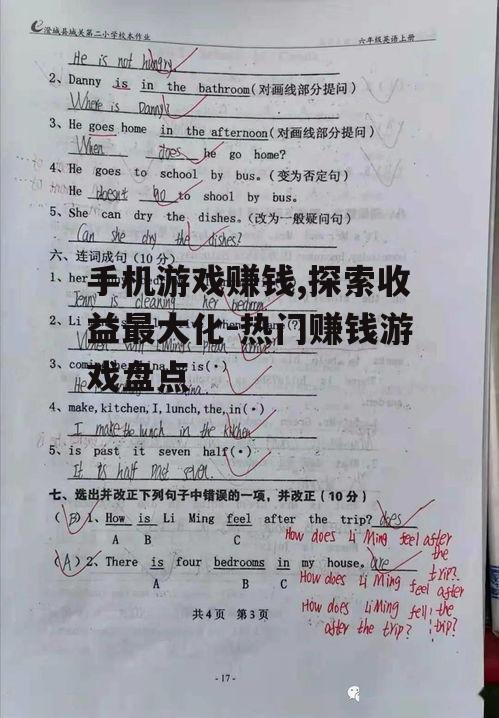 澄城县城关第二小学校本作业 六年级英语上册
He is not hungry
2、Danny is in the bathroom(对画线部分提问)
Where is Danny?
3、He goes home in the afternoon(对画线部分提问)
When does he go home?
4、He goes to school by bus.(变为否定句)
He doesn't go to shool by bus.
5、She can dry the dishes.(改为一般疑问句)
Can she dry the dishes?
六、连词成句(10分)
手机游戏赚钱,探索收
1、her
Jenny is cleaning her bedroom.
益最大化-热门赚钱游
2、Li
3、com is(·)
戏盘点
He
4、make,kitchen,I,lunch,the,in(·)
I make the lunch in the kitchen
5、is past it seven half(·)
It is half past seven.
七、选出并改正下列句子中错误的一项,并改正(10分)
(B)1、How is Li Ming feel after the trip? does
A B C
How does Li Ming feel after the trip?
(A)2、There is four bedrooms in my house. are
A B C
How does Li Ming feel after the trip?
How does Li Ming fell after the trip?
共4页 第3页
-17-